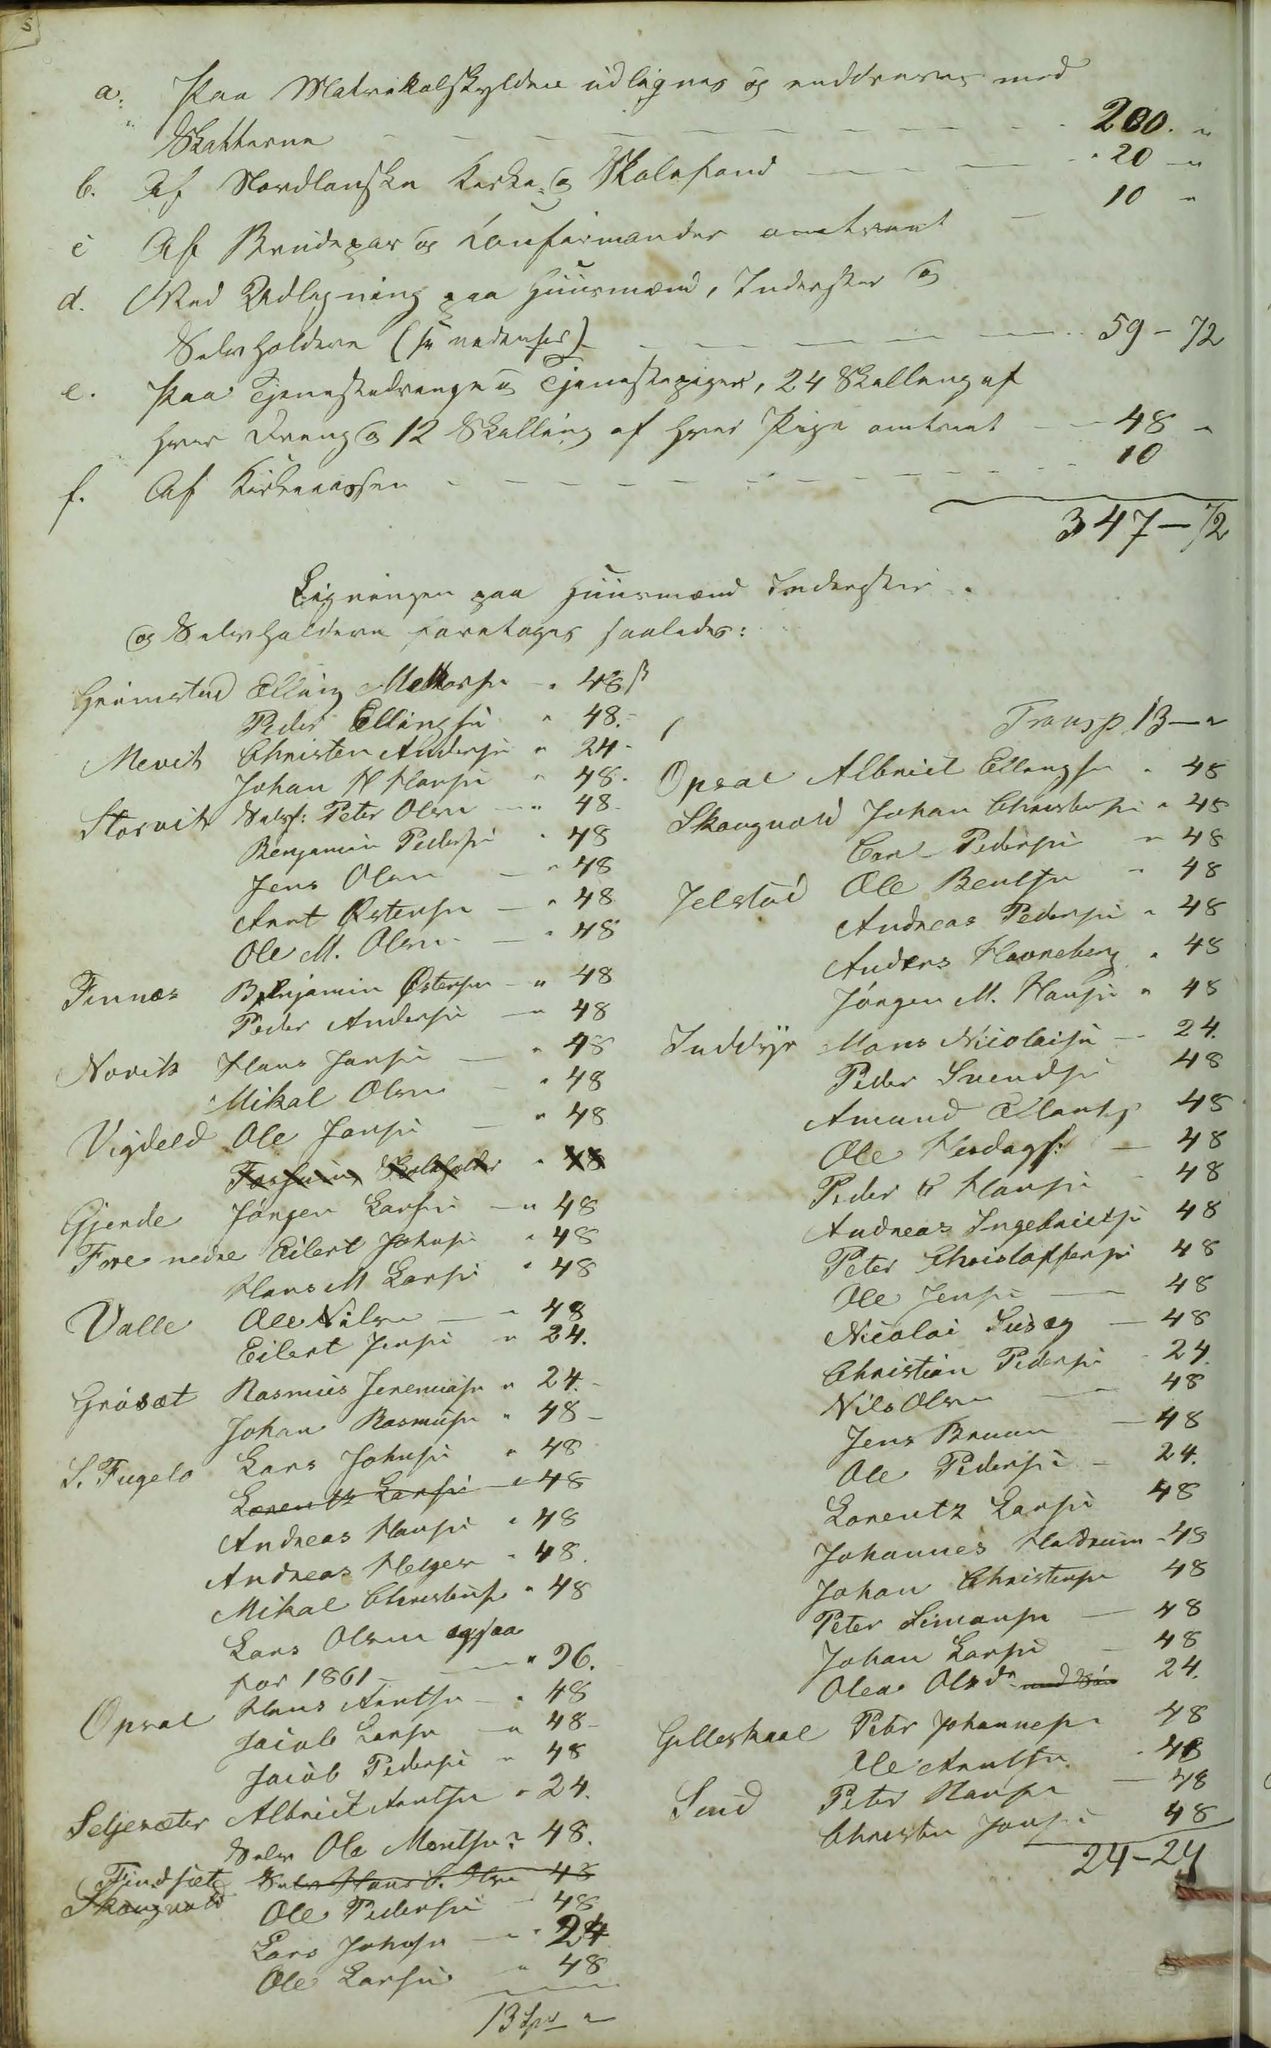 a. Paa Matrikulskylden udlignes og inddrives med
Skatterne 200. "
b. Af Nordlanske Kirke- og Skolefond 20 - "
c Af Brudepar og Konfirmander omtrent 10 "
d. Ved Udligning paa Huusmænd, Inderster og
Selvholdere (se nedenfor) 59 - 72
e. Paa Tjenestedrenge og Tjenestepiger, 24 Skilling af
hver Dreng og 12 Skilling af hver Pige omtrent 48 "
f. Af Kirkekassen 10
347 - 72
Ligningen paa Huusmænd Inderster
og Selvholdere foretages saaledes:
Grimstad Elling 48 ß
Peder Ellingsen " 48.
Mevik Christen Andersen " 24 -
Johan H Hansen " 48.
Storvik Selvh: Peter Olsen " 48.
Benjamin Pedersen " 48
Jens Olsen " 48
Arnt Østensen " 48
Ole M. Olsen " 48
Finnæs Benjamin Østensen " 48
Peder Andersen " 48
Novik Hans Jansen " 48
Mikal Olsen " 48
Vigdeld Ole Jansen " 48
" 48
Gjerde Jørgen Larsen " 48
Fore nedre Eilert Johnsen " 48
Hans M Larsen " 48
Valle Ole Nilsen " 48
Eilert Jensen " 24.
Gråsæt Rasmus Jeremiasen " 24. -
Johan Rasmusen " 48 -
S. Fugelø Lars Johnsen " 48
Lorentz Larsen " 48
Andreas Hansen " 48
Andreas Helgesen " 48.
Mikal Christensen " 48
Lars Olsen ogsaa
for 1861 " 96.
Opsal Hans Arntsen " 48
Jacob Larsen " 48 -
Jacob Pedersen " 48
Seljesæter Albrict Arntsen " 24.
Selv Ole Mortsen 48.
Findsæt Selv Hans C. Olsen 48
Skaugvold Ole Pedersen 48
Lars Johnsen " 24
Ole Larsen " 48
13 Spd "
Transp. 13 - "
Opsal Albrict Ellingsen " 48
Skaugvold Johan Christensen " 48
Carl Pedersen " 48
Jelstad Ole Bentsen " 48
Andreas Pedersen " 48
Anders Havneberg " 48
Jørgen M. Hansen " 48
Inddyr Mons Nicolaisen 24.
Peder Svendsen 48
Amund 48
Ole 48
Peder C Hansen 48
Andreas Ingebrictsen 48
Peter Christoffersen 48
Ole Jensen 48
Nicolai Susæg 48
Christian Pedersen 24.
Nils Olsen 48
Jens Bruun 48
Ole Pedersen 24.
Lorentz Larsen 48
Johannes Haldrum 48
Johan Christensen 48
Peter Simonsen 48
Johan Larsen 48
Olea Olsdr 24.
Gilleskaal Peter Johannesen 48
Ole Arntsen 48
Sund Peter Hansen 48
Christen Jansen 48
24 - 24